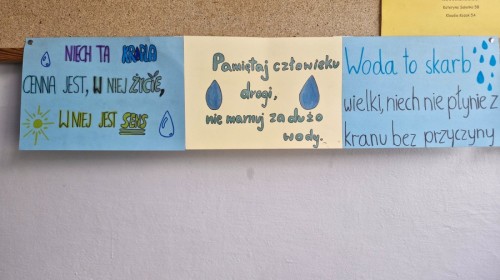 NIECH TA KROPLA
CENNA JEST, W NIEJ ŻYCIE,
W NIEJ JEST SENS
Pamiętaj człowieku
drogi,
nie marnuj za dużo
wody.
Woda to skarb
wielki, niech nie płynie z
kranu bez przyczyny